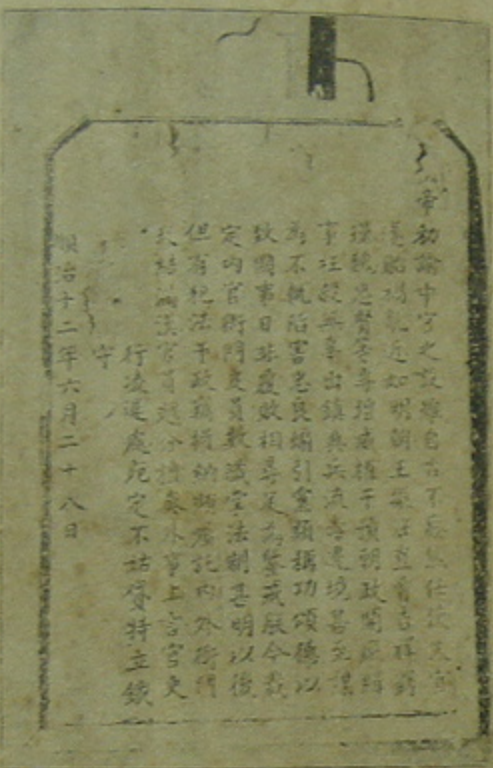 帝敕諭中官之設雖自古不廢然任使失宜
遂貽禍亂近如明朝王振汪直曹吉祥劉
瑾魏忠賢等專擅威權干預朝政開廠緝
事枉殺無辜出鎮典兵流毒邊境甚至謀
為不軌陷害忠良煽引黨類稱功頌德以
致國事日非覆敗相尋足為鑒戒朕今裁
定內官衙門及員數職掌法制甚明以後
但有犯法干政竊權納賄屬託內外衙門
交結滿漢官員越分擅奏外事上言官吏
行凌遲處死定不姑貸特立鐵
守
順治十二年六月二十八日